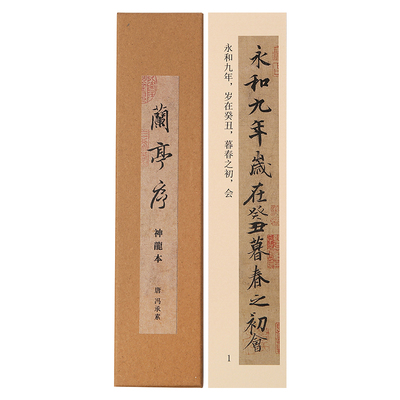 蘭亭序
神龍本
唐 冯承素
永和九年，岁在癸丑，暮春之初，会
永和九年歲在癸丑暮春之初會
1